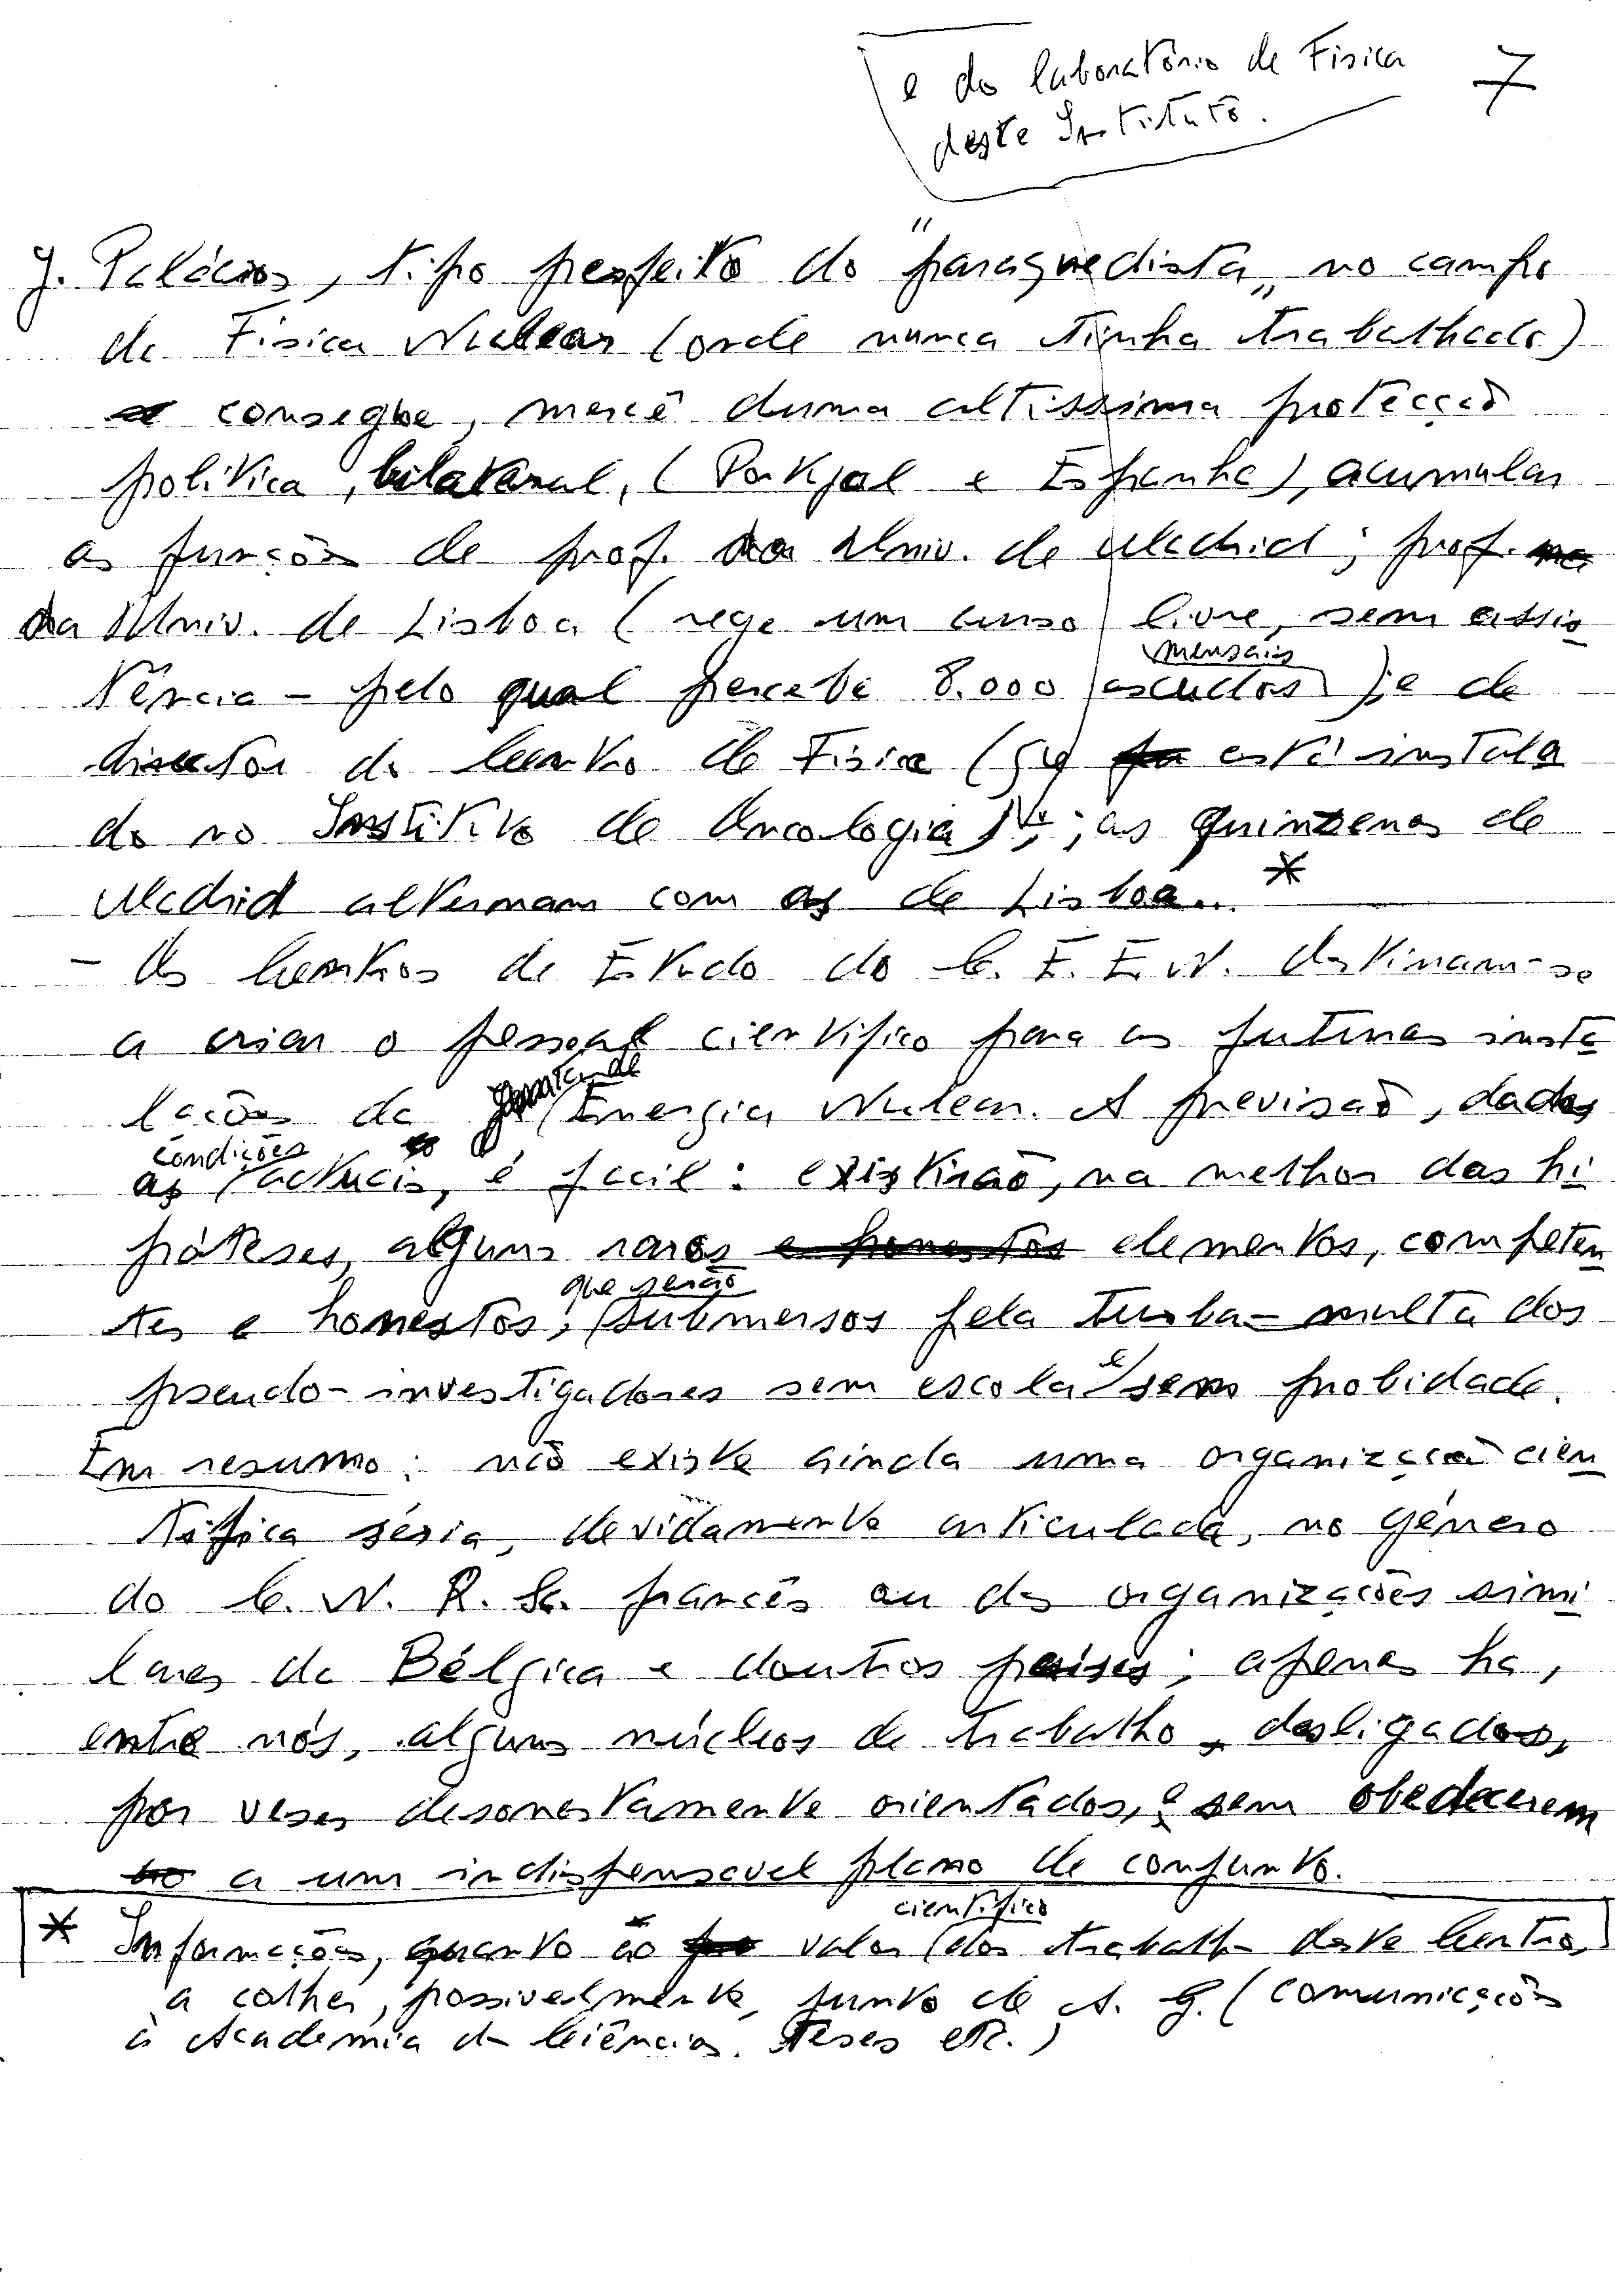 e do laboratório de Física
deste Instituto.
7
J. Palácios, tipo perfeito do "paraquedista,, no campo
da Física Nuclear (onde nunca tinha trabalhado)
consegue, mercê duma altíssima protecção
política, bilateral, (Portugal e Espanha), acumular
as funções de prof. da Univ. de Madrid; prof.
da Univ. de Lisboa (rege um curso livre, sem assis
tência - pelo qual percebe 8.000 escudos mensais); e de
director do Centro de Física (57) está instala
do no Instituto de Oncologia); as quinzenas de
Madrid alternam com as de Lisboa... *
- Os Centros de Estudo da C. E. E. N. destinam-se
a criar o pessoal científico para as futuras insta
lações da Energia Nuclear. A previsão, dadas
as condições actuais, é fácil: existirão, na melhor das hi
póteses, alguns raros elementos, competen
tes e honestos, que serão submersos pela turba-multa dos
pseudo-investigadores sem escola e sem probidade.
Em resumo: não existe ainda uma organização cien
tífica séria, devidamente articulada, no género
do C. N. R. Sc. francês ou das organizações simi
lares da Bélgica e doutros países; apenas há,
entre nós, alguns núcleos de trabalho, desligados,
por vezes desonestamente orientados, e sem obedecerem
a um indispensável plano de conjunto.
* Informações, quanto ao valor científico dos trabalhos deste Centro,
a colher, possivelmente, junto de A. G. (comunicações
à Academia das Ciências, Teses etc.)